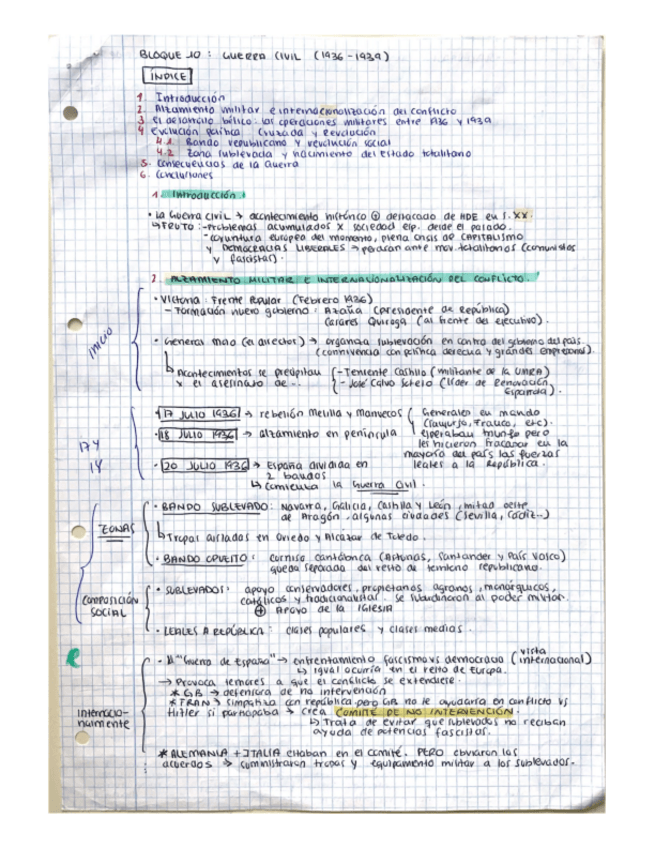 BLOQUE 10 : GUERRA CIVIL (1936-1939)
ÍNDICE
1. Introducción
2. Alzamiento militar e internacionalización del conflicto
3. El desarrollo bélico: las operaciones militares entre 1936 y 1939
4. Evolución política: Cruzada y Revolución
4.1. Bando republicano y revolución social
4.2. Zona sublevada y nacimiento del estado totalitario
5. Consecuencias de la Guerra
6. Conclusiones
1. Introducción:
· La Guerra Civil → acontecimiento histórico ⊕ destacado de HDE en s. XX.
↳ FRUTO: - Problemas acumulados x sociedad esp. desde el pasado.
- coyuntura europea del momento, plena crisis de CAPITALISMO
y DEMOCRACIAS LIBERALES → ante mov. totalitarios (comunistas
y fascistas).
2. ALZAMIENTO MILITAR E INTERNACIONALIZACIÓN DEL CONFLICTO.
INICIO
· Victoria: Frente Popular (Febrero 1936)
- Formación nuevo gobierno: Azaña (presidente de República)
Casares Quiroga (al frente del ejecutivo).
· General Mola (el director) → organiza sublevación en contra del gobierno del país
(connivencia con política derecha y grandes empresarios).
↳ Acontecimientos se precipitan
y el asesinato de -.
- Teniente Castillo (militante de la UMRA)
- José Calvo Sotelo (líder de Renovación
Española).
17 Y
18
· 17 JULIO 1936 → rebelión Melilla y Marruecos
· 18 JULIO 1936 → alzamiento en península
Generales en mando
(Sanjurjo, Franco, etc).
esperaban triunfo pero
les hicieron fracasar en la
mayoría del país las fuerzas
leales a la República.
· 20 JULIO 1936 → España dividida en
2 bandos
↳ comienza la Guerra Civil.
ZONAS
· BANDO SUBLEVADO: Navarra, Galicia, Castilla y León, mitad oeste
de Aragón, algunas ciudades (Sevilla, Cádiz..)
↳ Tropas aisladas en Oviedo y Alcázar de Toledo.
· BANDO OPUESTO: cornisa cantábrica (Asturias, Santander y País Vasco)
queda separada del resto de territorio republicano.
COMPOSICIÓN
SOCIAL
· SUBLEVADOS: apoyo conservadores, propietarios agrarios, monárquicos,
católicos y tradicionalistas. Se subordinaron al poder militar.
⊕ Apoyo de la IGLESIA
· LEALES A REPÚBLICA: clases populares y clases medias.
Internacio-
nalmente
"Guerra de España" → enfrentamiento fascismo vs democracia (vista
internacional)
↳ igual ocurría en el resto de Europa.
→ Provoca temores a que el conflicto se extendiera.
* GB → defensora de no intervención
* FRAN → simpatiza con república pero GB no le ayudaría en conflicto vs
Hitler si participaba → crea COMITÉ DE NO INTERVENCIÓN.
↳ Trata de evitar que sublevados no reciban
ayuda de potencias fascistas.
* ALEMANIA + ITALIA estaban en el comité. PERO obviaron los
acuerdos → suministraron tropas y equipamiento militar a los sublevados.